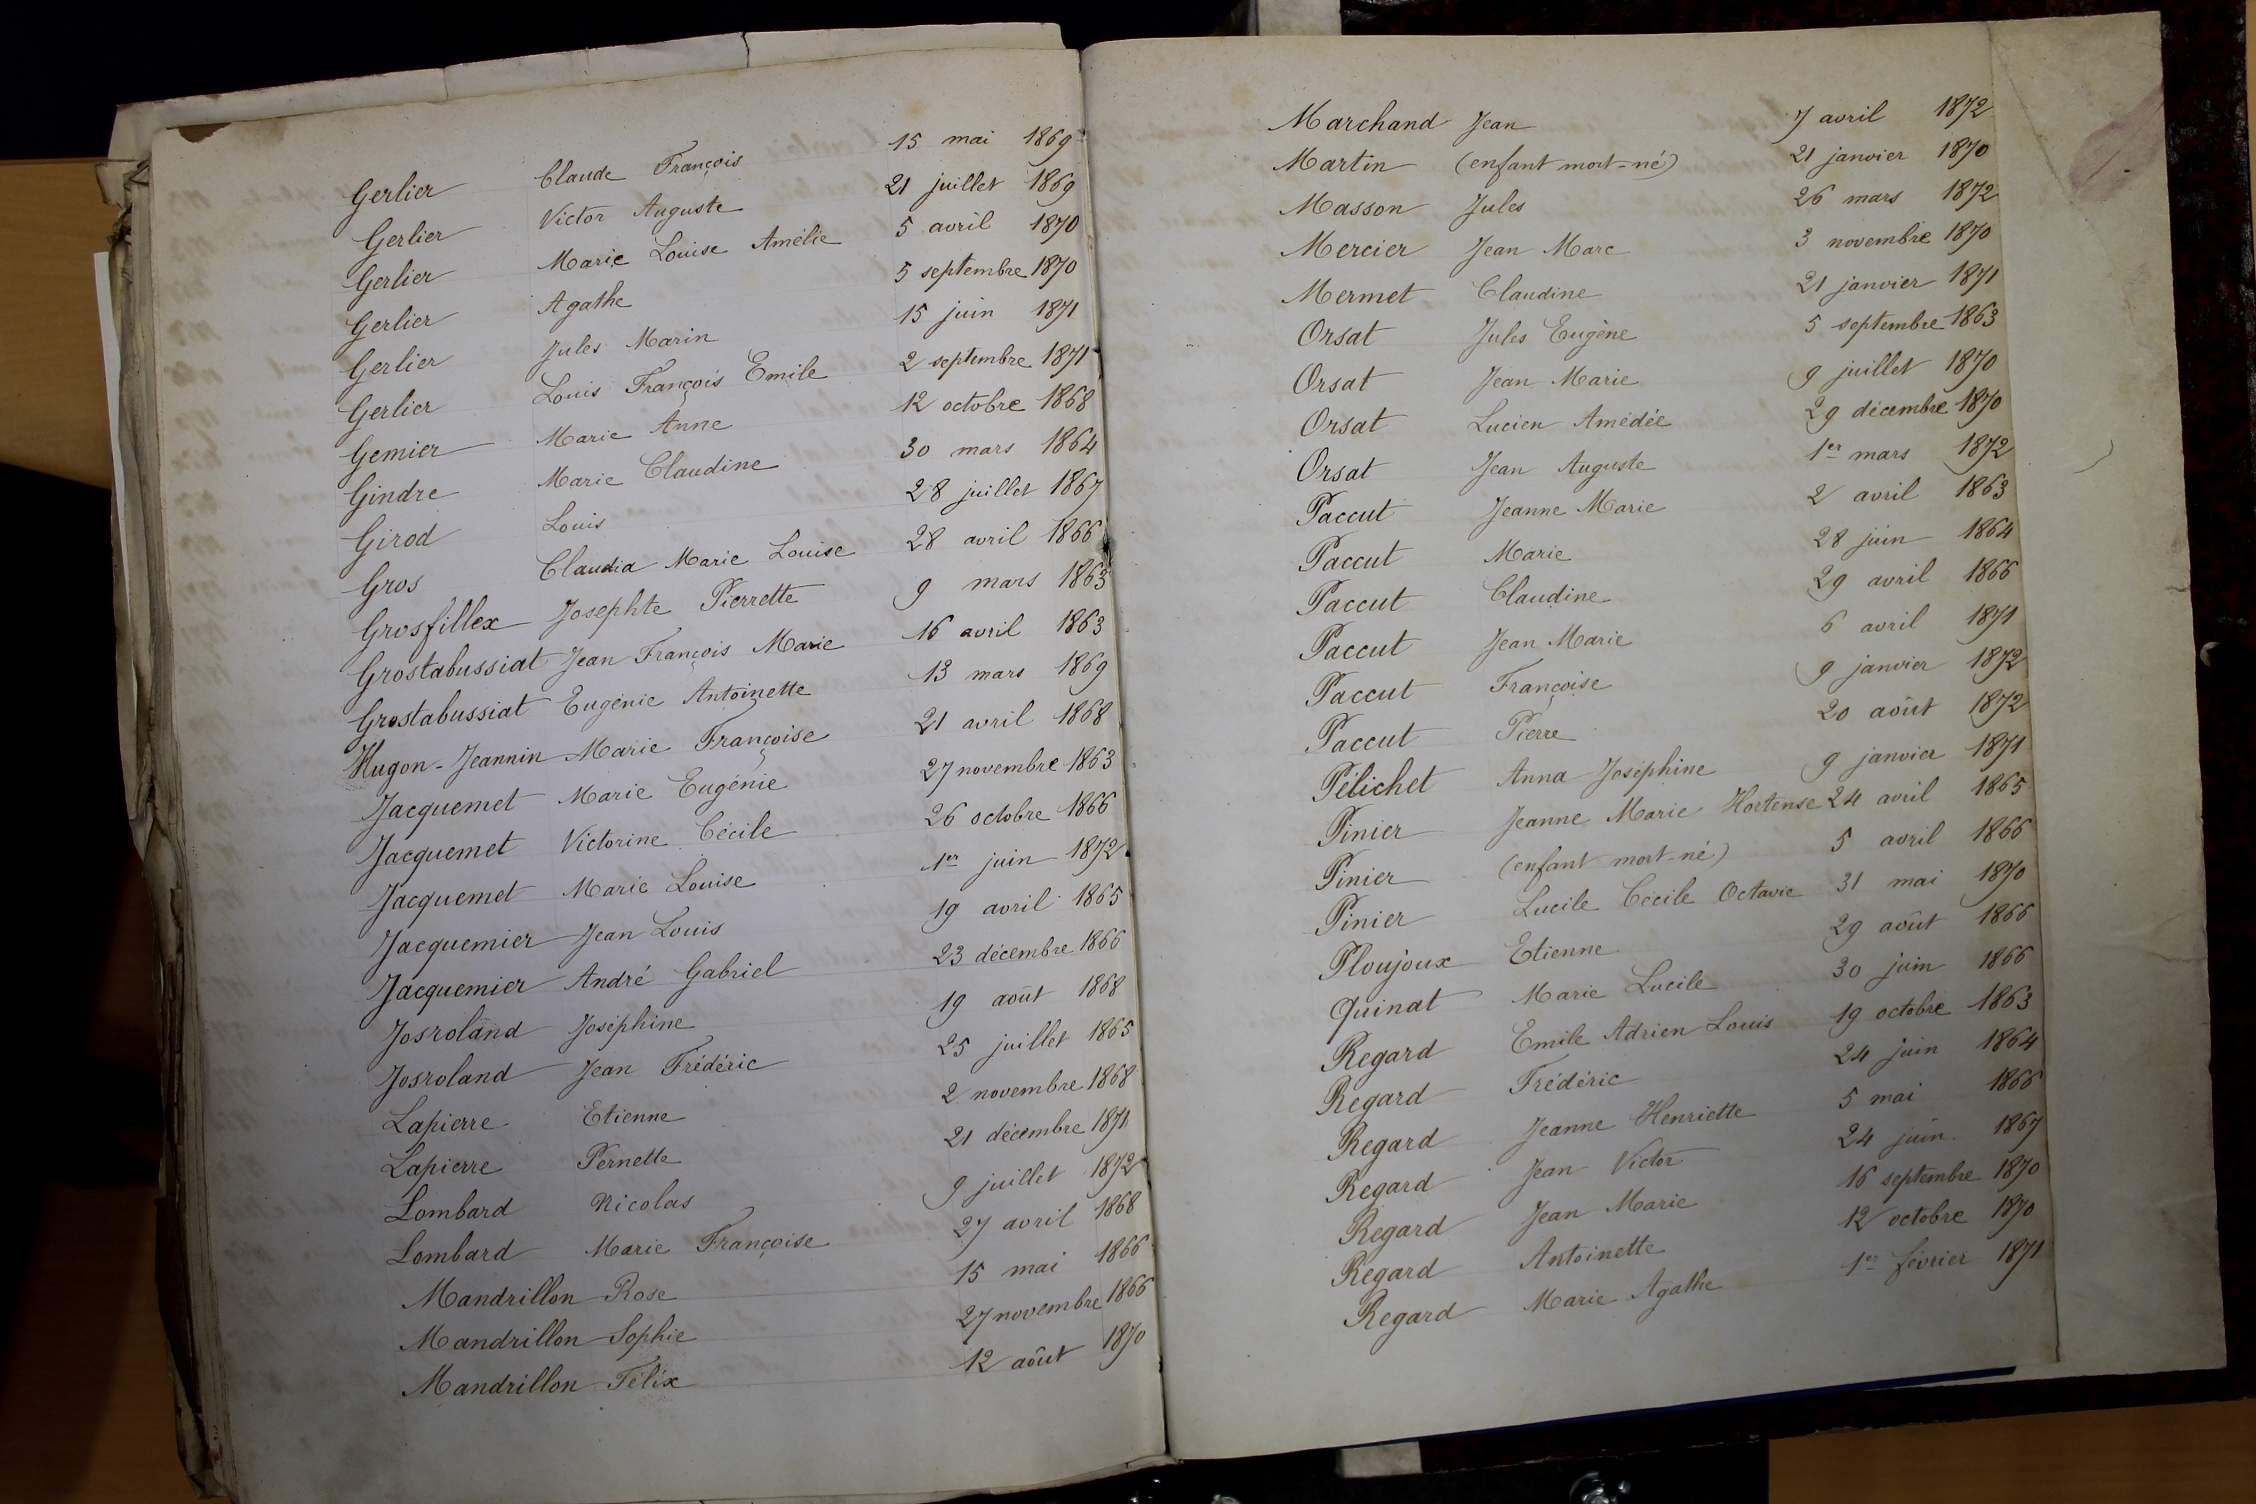 Gerlier Claude François 15 mai 1869
Gerlier Victor Auguste 21 juillet 1869
Gerlier Marie Louise Amélie 5 avril 1870
Gerlier Agathe 5 septembre 1870
Gerlier Jules Marin 15 juin 1871
Gerlier Louis François Emile 2 septembre 1871
Gemier Marie Anne 12 octobre 1868
Gindre Marie Claudine 30 mars 1864
Girod Louis 28 juillet 1867
Gros Claudia Marie Louise 28 avril 1866
Grosfillex Josephte Pierrette 9 mars 1863
Grostabussiat Jean François Marie 16 avril 1863
Grostabussiat Eugénie Antoinette 13 mars 1869
Hugon-Jeannin Marie Françoise 21 avril 1868
Jacquemet Marie Eugénie 27 novembre 1863
Jacquemet Victorine Cécile 26 octobre 1866
Jacquemet Marie Louise 1er juin 1872
Jacquemier Jean Louis 19 avril 1865
Jacquemier André Gabriel 23 décembre 1866
Josroland Joséphine 19 août 1868
Josroland Jean Frédéric 25 juillet 1865
Lapierre Etienne 2 novembre 1868
Lapierre Pernette 21 décembre 1871
Lombard Nicolas 9 juillet 1872
Lombard Marie Françoise 27 avril 1868
Mandrillon Rose 15 mai 1866
Mandrillon Sophie 27 novembre 1866
Mandrillon Félix 12 août 1870
Marchand Jean 7 avril 1872
Martin (enfant mort-né) 21 janvier 1870
Masson Jules 26 mars 1872
Mercier Jean Marc 3 novembre 1870
Mermet Claudine 21 janvier 1871
Orsat Jules Eugène 5 septembre 1863
Orsat Jean Marie 9 juillet 1870
Orsat Lucien Amédée 29 décembre 1870
Orsat Jean Auguste 1er mars 1872
Paccut Jeanne Marie 2 avril 1863
Paccut Marie 28 juin 1864
Paccut Claudine 29 avril 1866
Paccut Jean Marie 6 avril 1871
Paccut Françoise 9 janvier 1872
Paccut Pierre 20 août 1872
Pélichet Anna Joséphine 9 janvier 1871
Pinier Jeanne Marie Hortense 24 avril 1865
Pinier (enfant mort-né) 5 avril 1866
Pinier Lucile Cécile Octavie 31 mai 1870
Ploujoux Etienne 29 août 1866
Quinat Marie Lucile 30 juin 1866
Regard Emile Adrien Louis 19 octobre 1863
Regard Frédéric 24 juin 1864
Regard Jeanne Henriette 5 mai 1866
Regard Jean Victor 24 juin 1867
Regard Jean Marie 16 septembre 1870
Regard Antoinette 12 octobre 1870
Regard Marie Agathe 1er février 1871